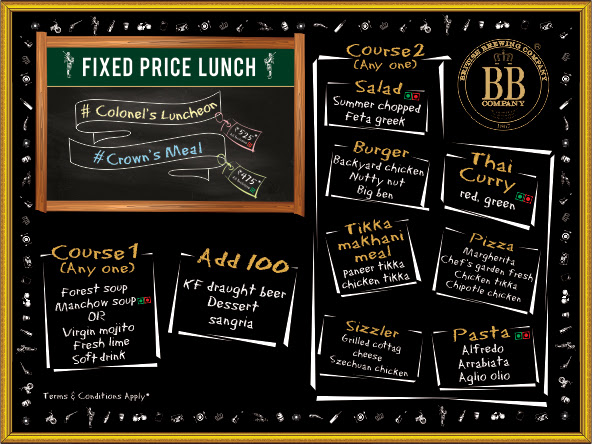 FIXED PRICE LUNCH
# Colonel's Luncheon
₹525*
#Crown's Meal
₹475*
Course 1
(Any one)
Forest soup
Manchow soup
OR
Virgin mojito
Fresh lime
Soft drink
Add 100
KF draught beer
Dessert
sangria
Course2
(Any one)
Salad
Summer chopped
Feta greek
Burger
Backyard chicken
Nutty nut
Big ben
Thai
Curry
red, green
Tikka
makhani
meal
Paneer tikka
chicken tikka
Pizza
Margherita
Chef's garden fresh
Chicken tikka
Chipotle chicken
Sizzler
Grilled cottag
cheese
Szechuan chicken
Pasta
Alfredo
Arrabiata
Aglio olio
BRITISH BREWING COMPANY
BB
COMPANY
Terms & Conditions Apply*